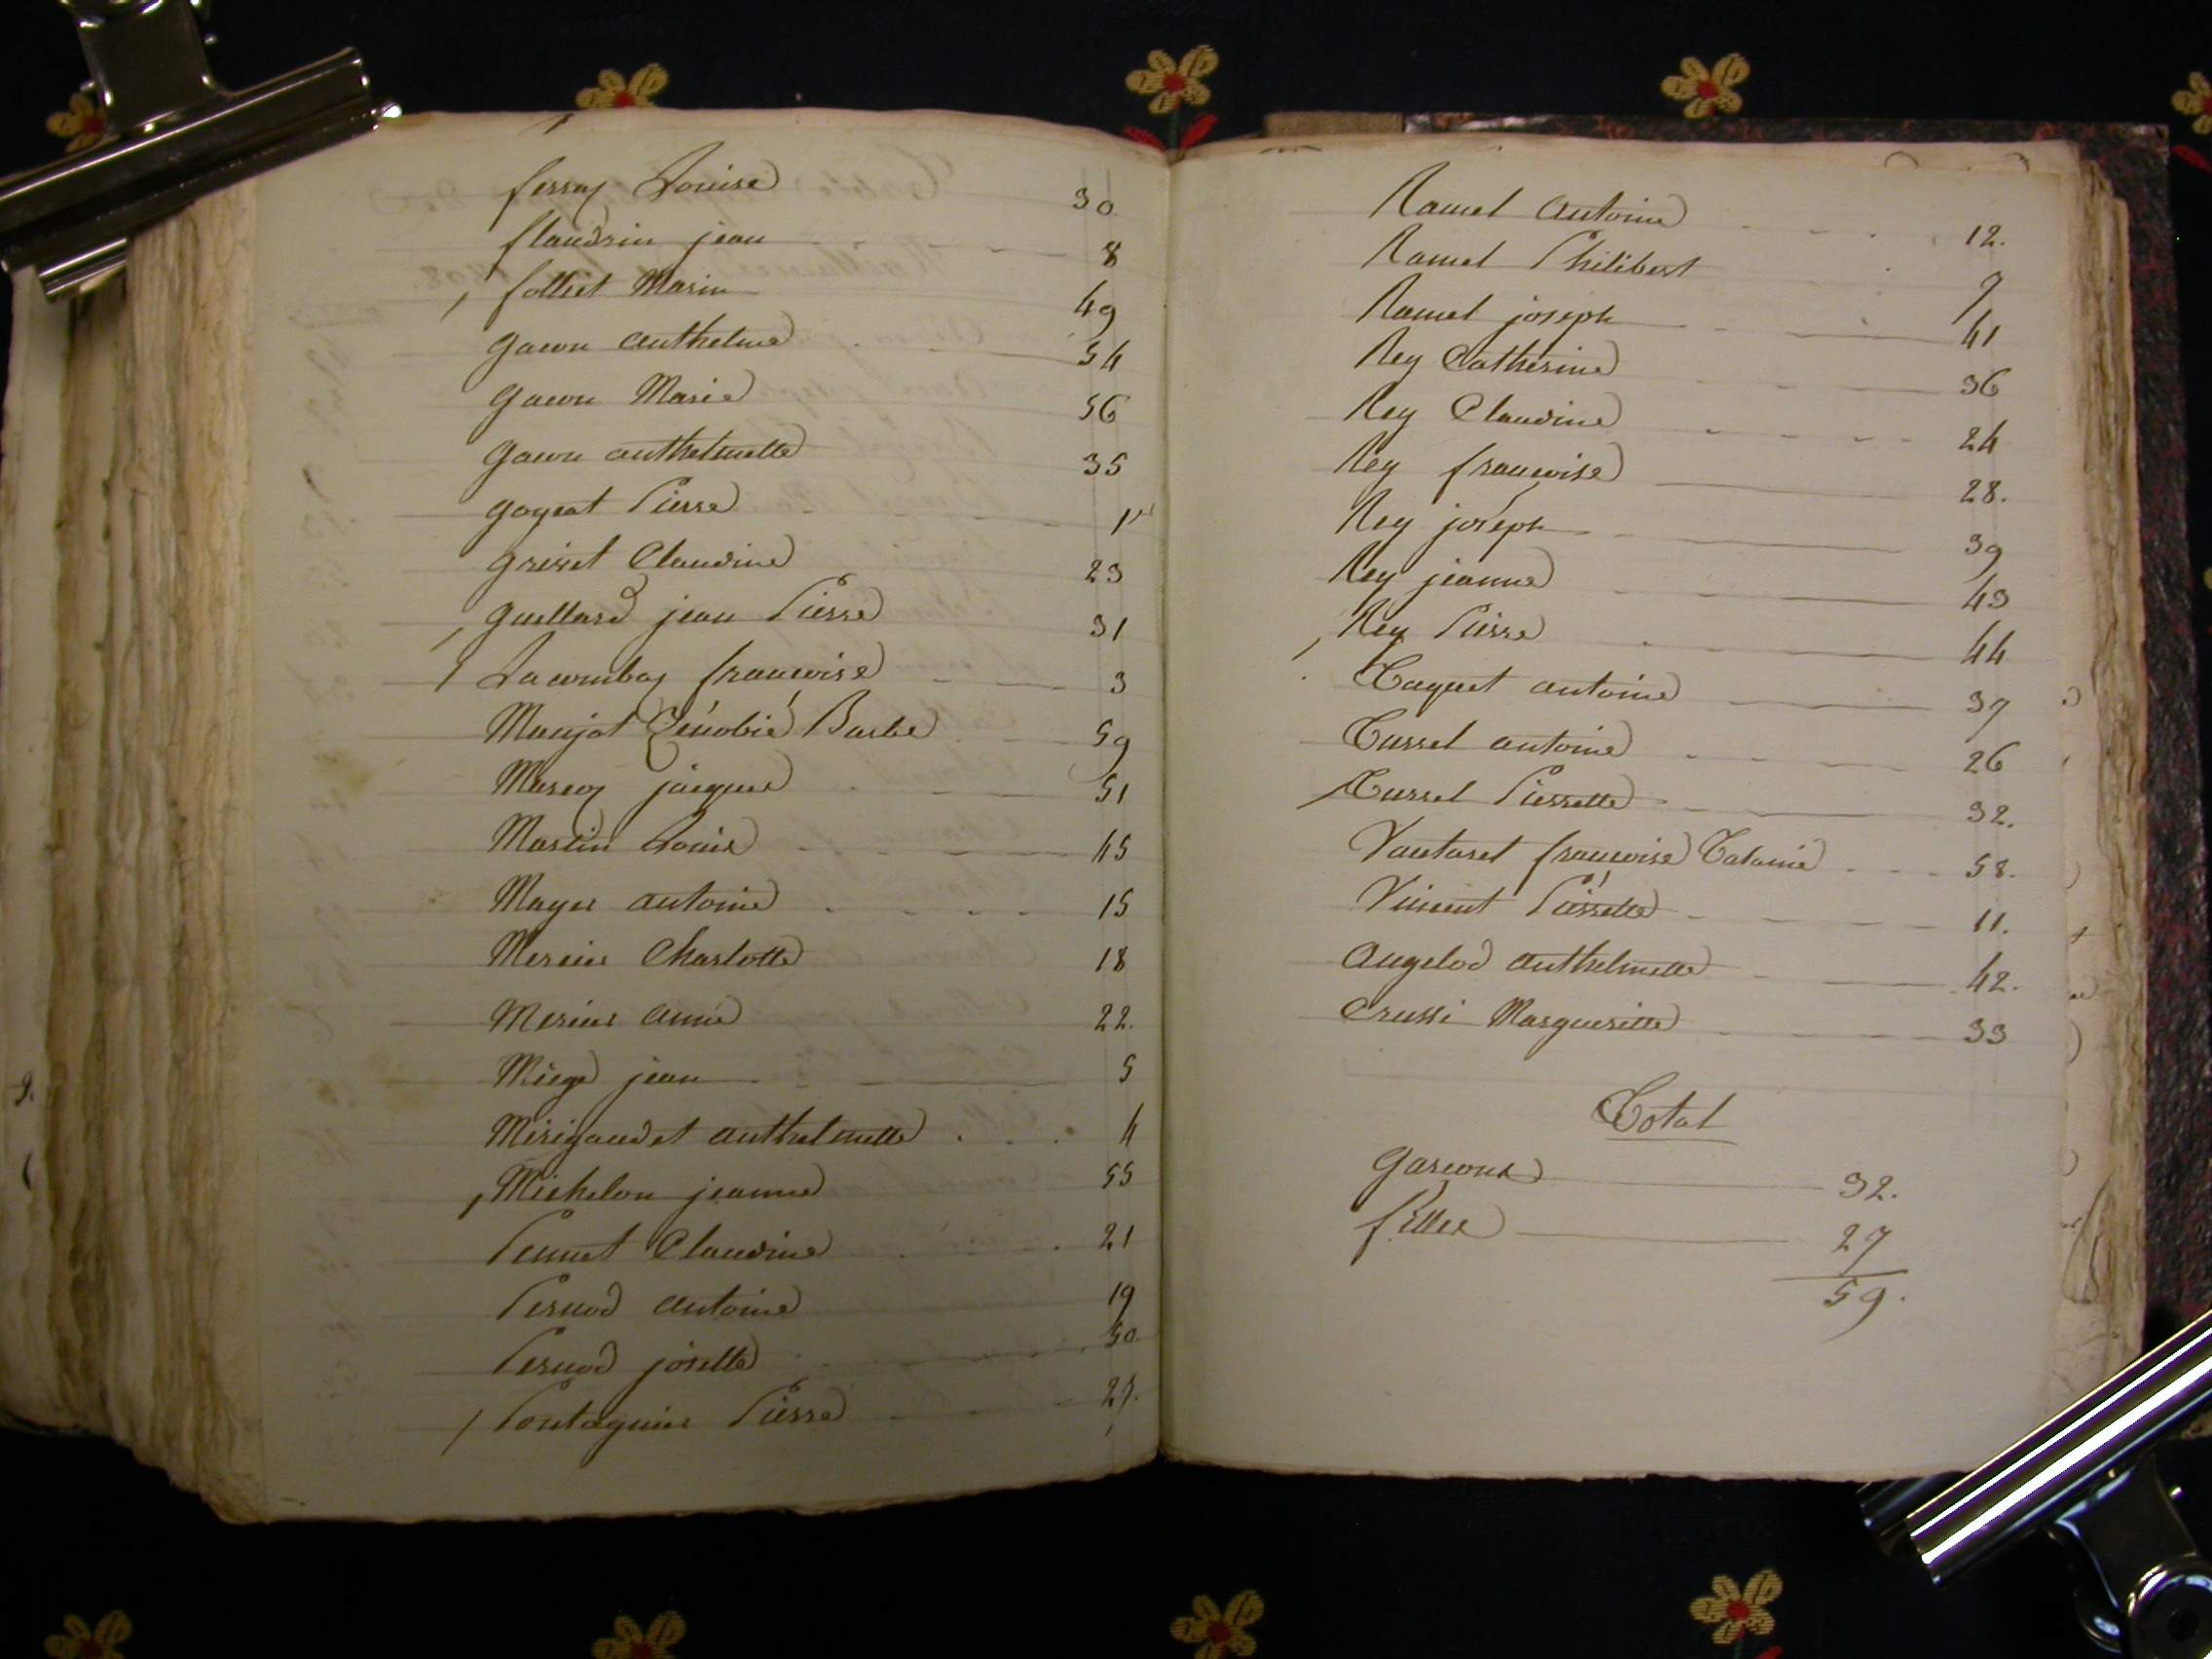 ferraz Louise 30
flandrin jean 8
folliet Marin 49
gacon anthelme 54
gacon Marie 56
gacon anthelmette 35
gogeat Pierre 1er
grivet Claudine 23
guillard jean Pierre 31
Lacombaz francoise 3
Manjot Zénobie Barbe 59
Marcoz jacques 51
Martin Louis 45
Mayer antoine 15
Mercier Charlotte 18
Mercier anne 22.
Miege jean 5
Mirigaudet anthelmette 4
Michelon jeanne 55
Pennet Claudine 21
Pernod antoine 19
Pernod josette 50
Pontaguier Pierre
Ramel Antoine 12.
Ramel Philibert 9
Ramel joseph 41
Rey Catherine 36
Rey Claudine 24
Rey francoise 28.
Rey joseph 39
Rey jeanne 43
Rey Pierre 44
Taquet antoine 37
Tussel antoine 26
Tussel Pierrette 32.
Vautaret francoise 58.
Vincent Pierrette 11.
Angelod anthelmette 42.
Crussi Margueritte 33
Total
garcons 32.
filles 27
59.